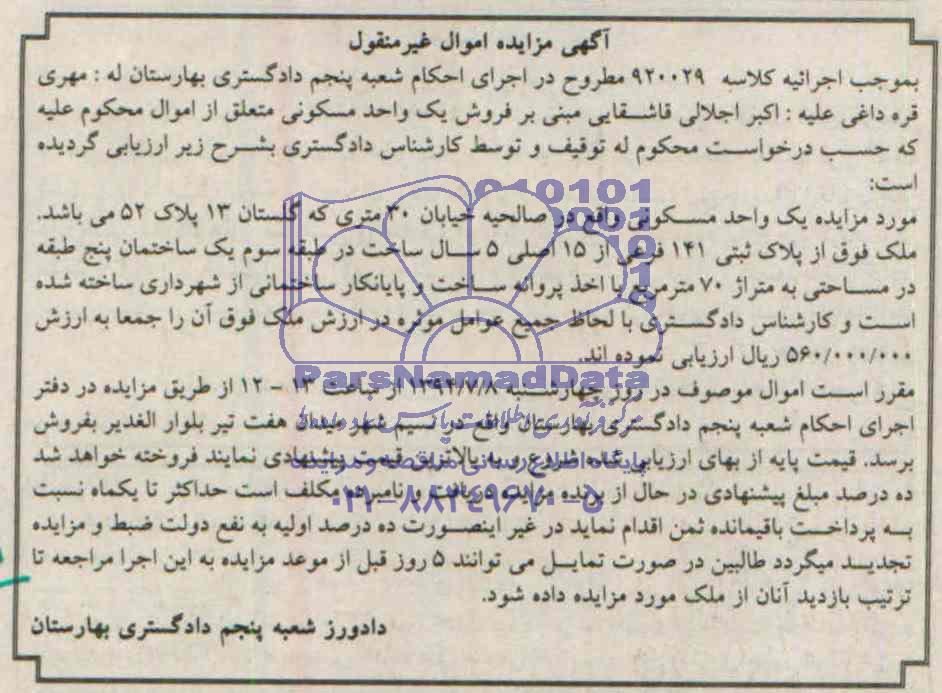 آگهی مزایده اموال غیرمنقول
بموجب اجرائیه کلاسه ۹۲۰۰۲۹ مطروح در اجرای احکام شعبه پنجم دادگستری بهارستان له : مهری
قره داغی علیه : اکبر اجلالی قاشقایی مبنی بر فروش یک واحد مسکونی متعلق از اموال محکوم علیه
که حسب درخواست محکوم له توقیف و توسط کارشناس دادگستری بشرح زیر ارزیابی گردیده
است:
مورد مزایده یک واحد مسکونی واقع در صالحیه خیابان ۳۰ متری که گلستان ۱۳ پلاک ۵۲ می باشد.
ملک فوق از پلاک ثبتی ۱۴۱ فرعی از ۱۵ اصلی ۵ سال ساخت در طبقه سوم یک ساختمان پنج طبقه
در مساحتی به متراژ ۷۰ مترمربع با اخذ پروانه ساخت و پایانکار ساختمانی از شهرداری ساخته شده
است و کارشناس دادگستری با لحاظ جمیع عوامل موثره در ارزش ملک فوق آن را جمعا به ارزش
۵۶۰/۰۰۰/۰۰۰ ریال ارزیابی نموده اند.
مقرر است اموال موصوف در روز چهارشنبه ۱۳۹۴/۷/۸ از ساعت ۱۳ - ۱۲ از طریق مزایده در دفتر
اجرای احکام شعبه پنجم دادگستری بهارستان واقع در نسیم شهر میدان هفت تیر بلوار الغدیر بفروش
برسد. قیمت پایه از بهای ارزیابی شده شروع و به بالاترین قیمت پیشنهادی نمایند فروخته خواهد شد
ده درصد مبلغ پیشنهادی در حال از برنده مزایده دریافت و نامبرده مکلف است حداکثر تا یکماه نسبت
به پرداخت باقیمانده ثمن اقدام نماید در غیر اینصورت ده درصد اولیه به نفع دولت ضبط و مزایده
تجدید میگردد طالبین در صورت تمایل می توانند ۵ روز قبل از موعد مزایده به این اجرا مراجعه تا
ترتیب بازدید آنان از ملک مورد مزایده داده شود.
دادورز شعبه پنجم دادگستری بهارستان
ParsNamadData
۰۲۱-۸۸۳۴۹۶۷۰-۵